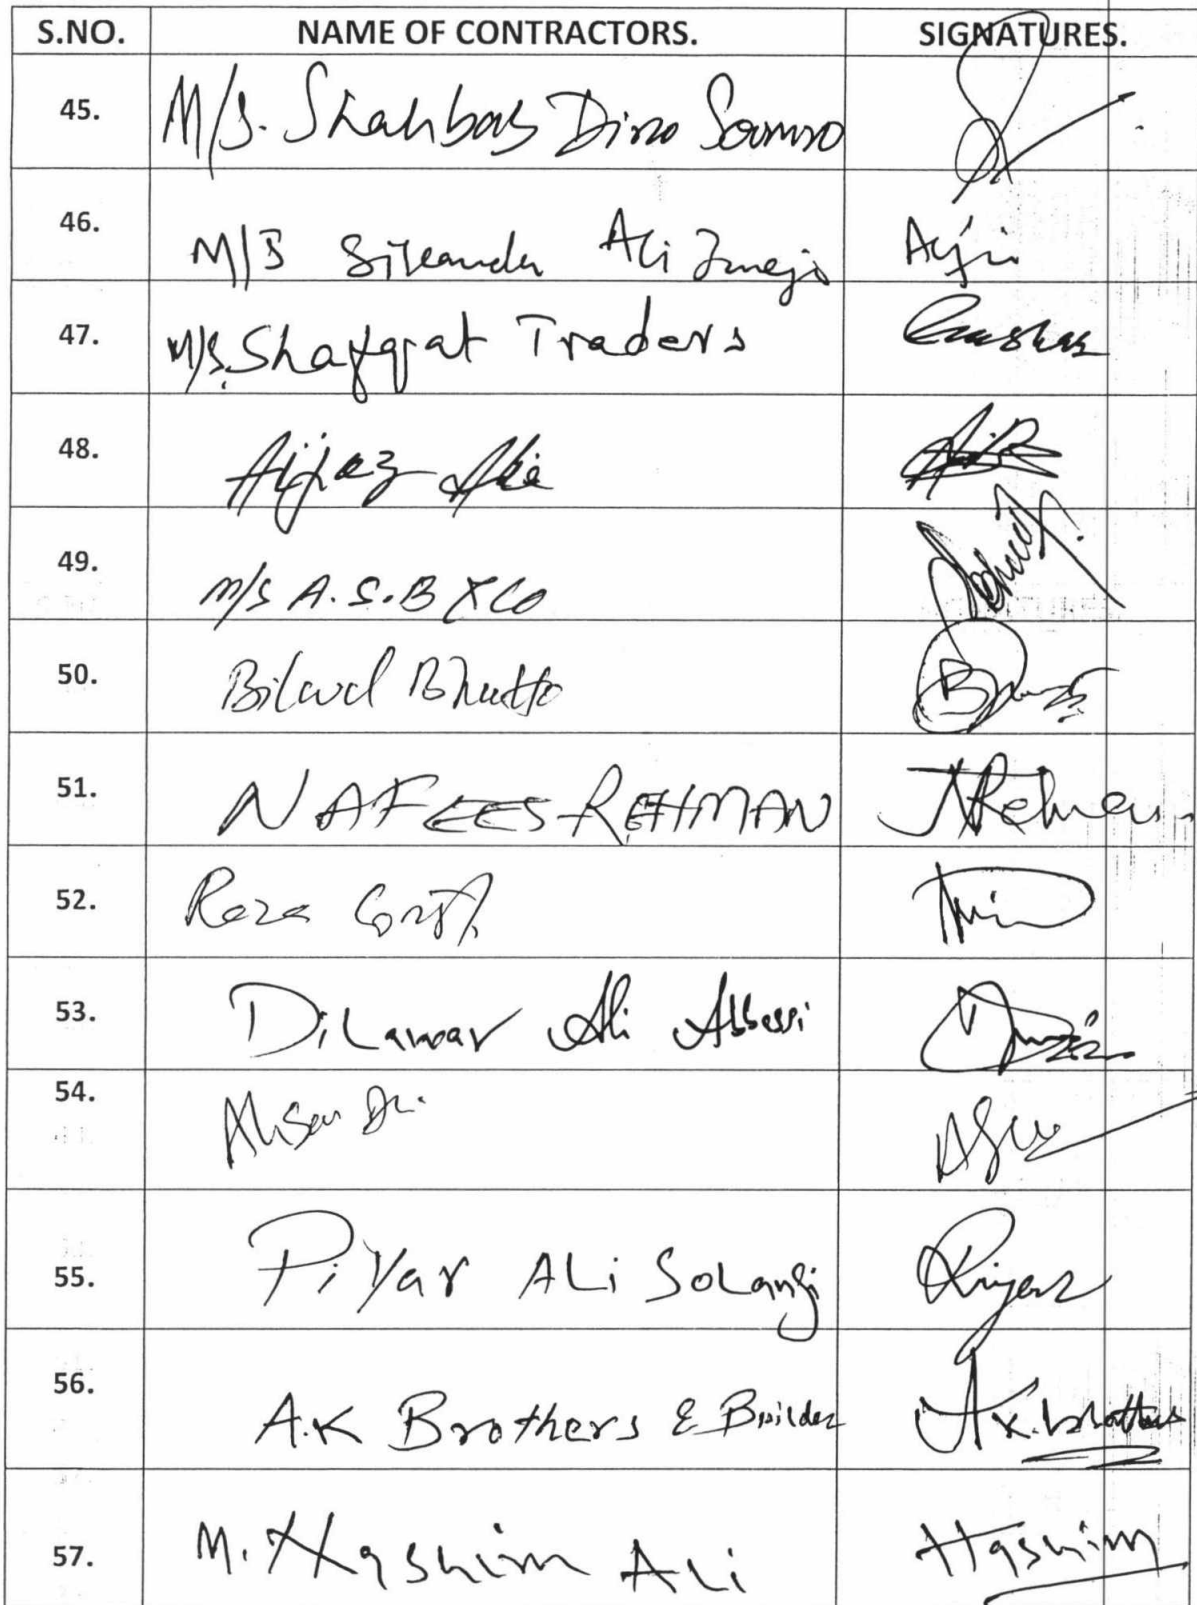 S.NO. NAME OF CONTRACTORS. SIGNATURES.
45. M/S. Shahbaz Dino Soomro
46. M/S Sikander Ali Junejo
47. M/S. Shafqat Traders
48. Aijaz Ali
49. M/S A.S.B & Co
50. Bilawal Bhutto
51. NAFEES REHMAN NRehman
52. Raza
53. Dilawar Ali Abbassi
54. Ahsan Ali
55. Piyar ALi SoLangi
56. A.K Brothers & Builder A.K. brothers
57. M. Hashim ALi Hashim